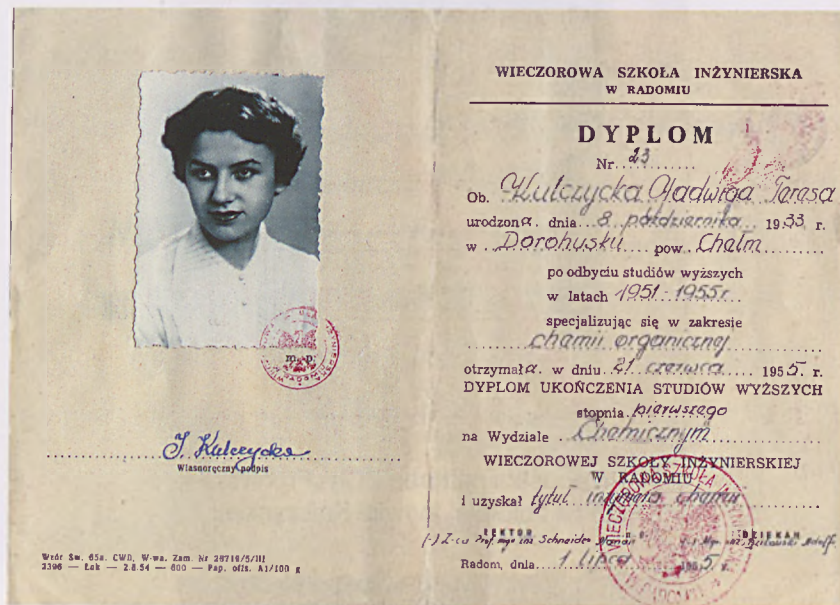 m. p.
J. Kulczycka
Własnoręczny podpis
Wzór Św. 65a. CWD, W-wa. Zam. Nr 26719/5/III
2396 — Łak — 2.8.54 — 600 — Pap. ofis. A1/100 g
WIECZOROWA SZKOŁA INŻYNIERSKA
W RADOMIU
DYPLOM
Nr 23
Ob. Kulczycka Jadwiga Teresa
urodzona dnia 8 października 1933 r.
w Dorohusku pow. Chełm
po odbyciu studiów wyższych
w latach 1951-1955 r.
specjalizując się w zakresie
chemii organicznej
otrzymała w dniu 21 czerwca 1955. r.
DYPLOM UKOŃCZENIA STUDIÓW WYŻSZYCH
stopnia pierwszego
na Wydziale Chemicznym
WIECZOROWEJ SZKOŁY INŻYNIERSKIEJ
W RADOMIU
i uzyskał tytuł inżyniera chemii
REKTOR DZIEKAN
(-) Z-ca Prof. mgr inż Schneider Marian Mgr inż. Adolf
Radom, dnia 1 lipca 1955 r.
WIECZOROWA SZKOŁA W RADOMIU